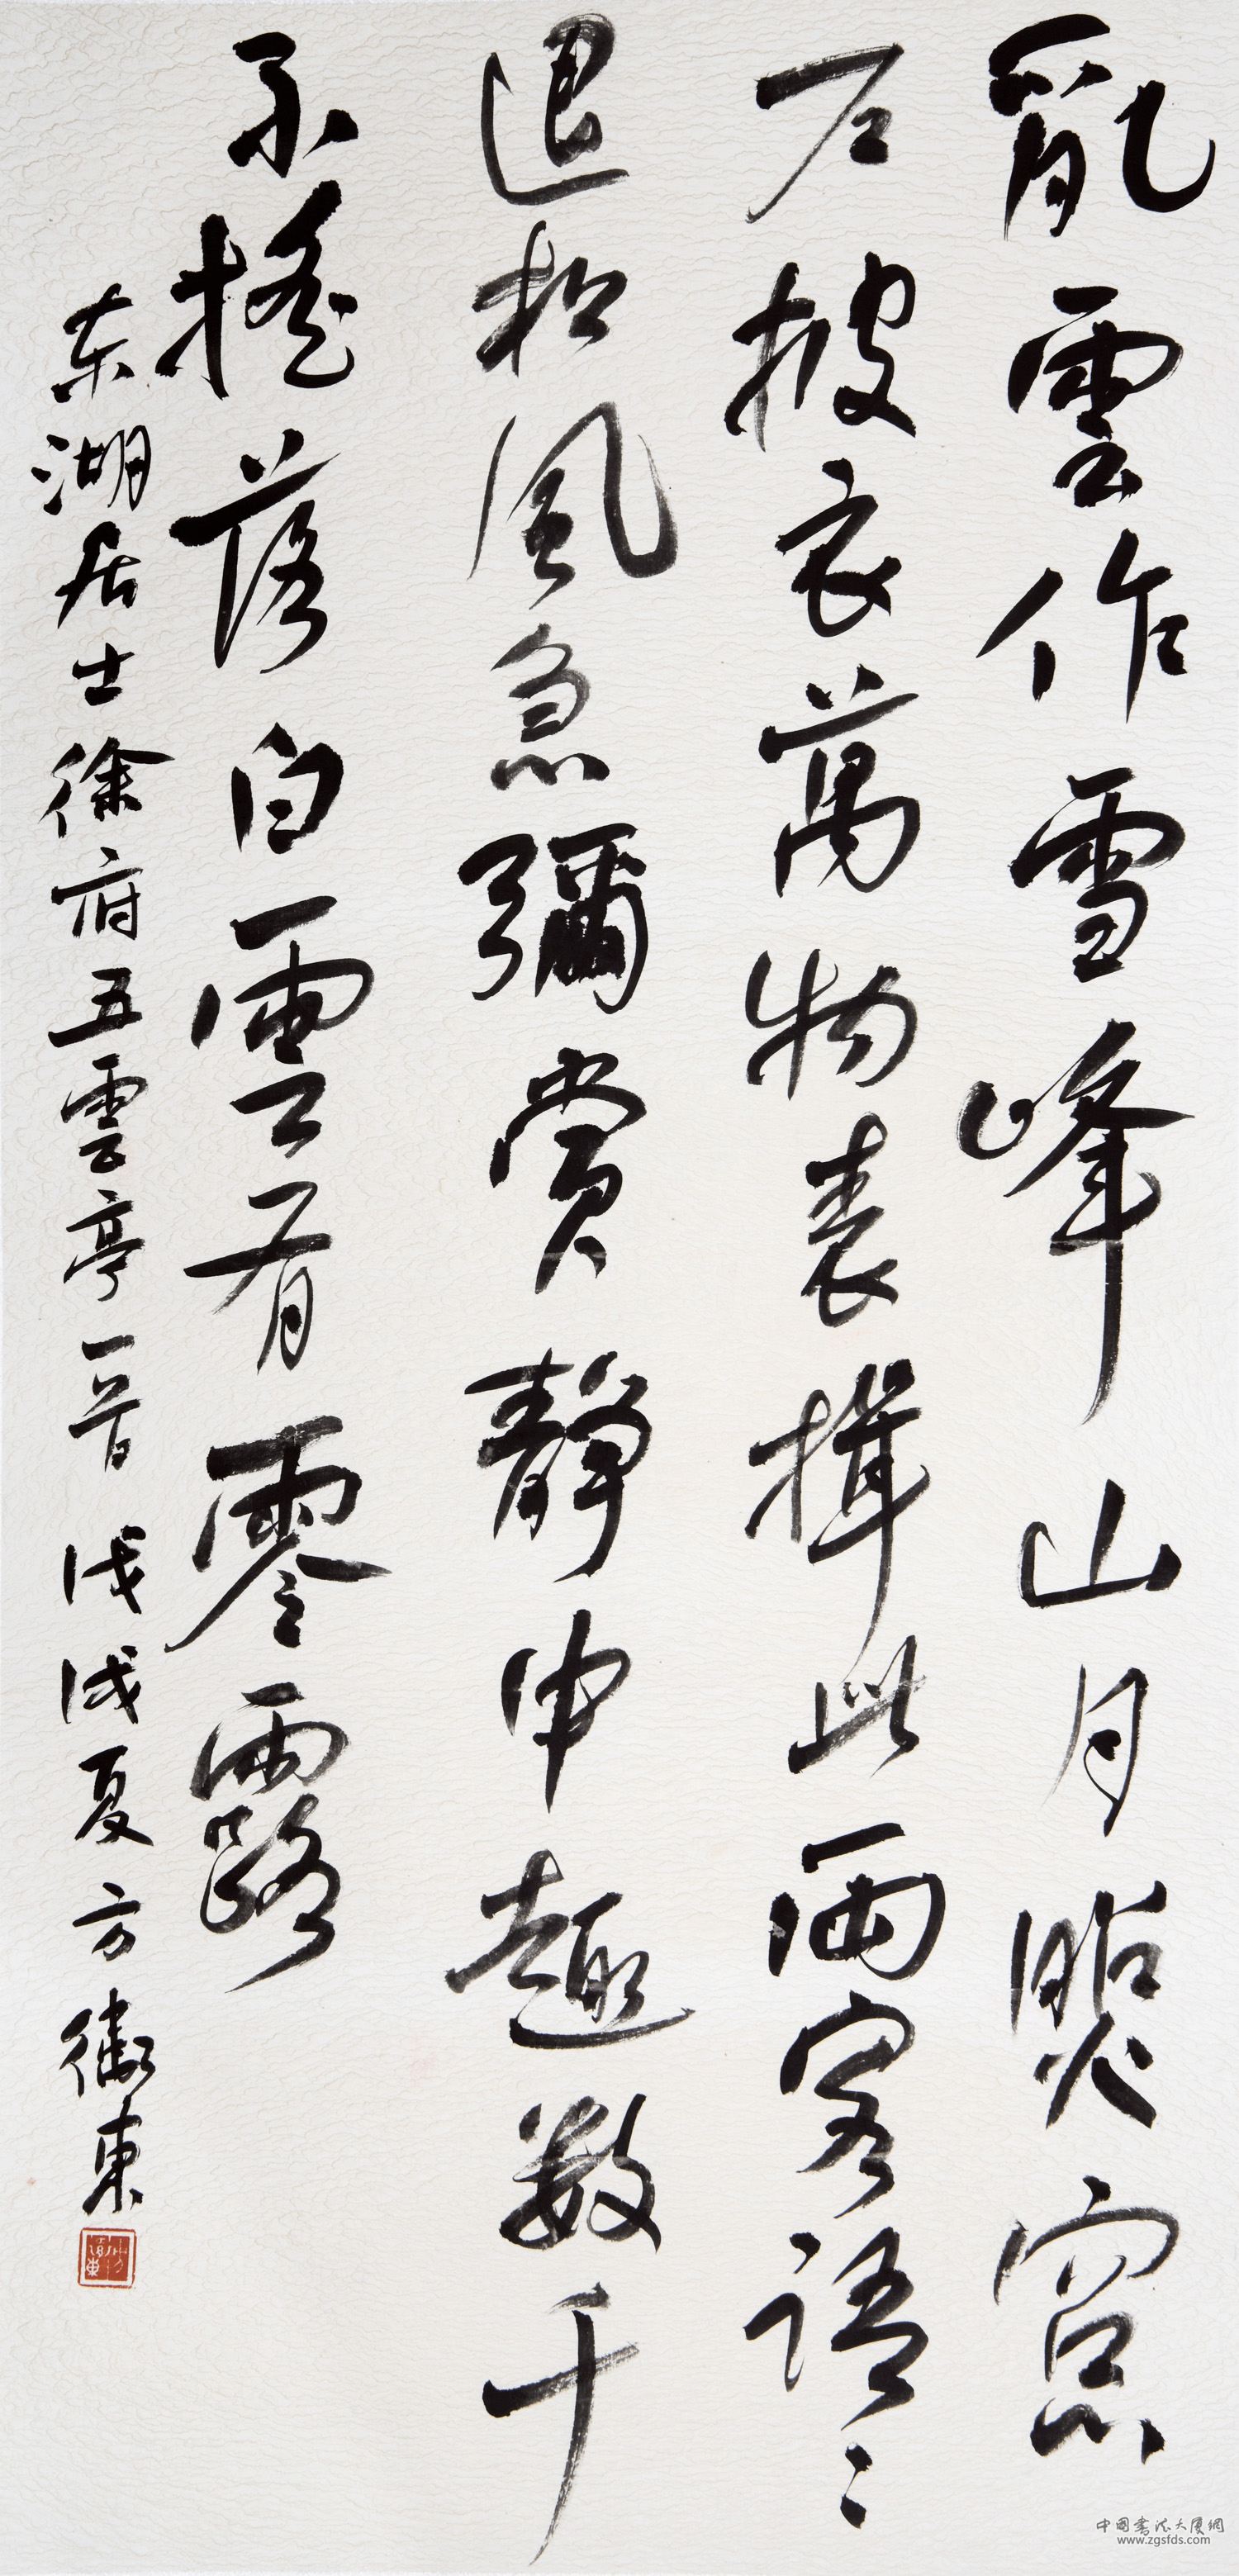 亂雲作雪峰山月照窗
石披衣萬物表揖此兩客語〻
退松風急彌賞靜中趣數千
不搖落白雲有零露
东湖居士徐府五雲亭一首 戊戌夏方徽東
中國書法大廈網
www.zgsfds.com